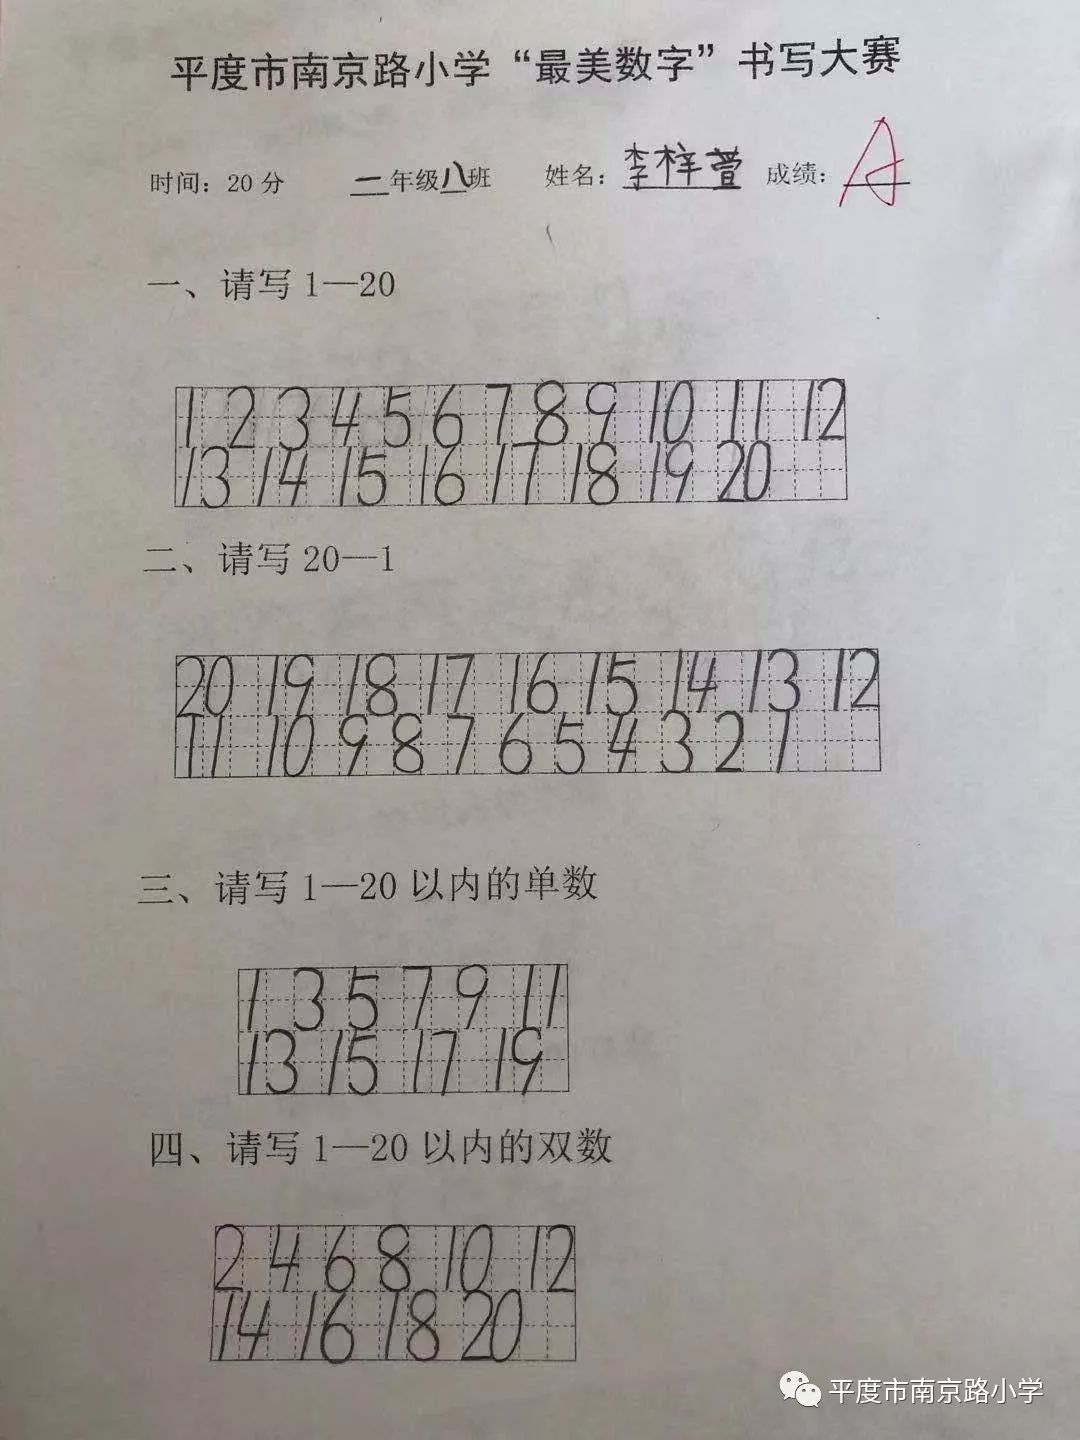 平度市南京路小学“最美数字”书写大赛
时间：20分 一年级八班 姓名：李梓萱 成绩：A
一、请写1—20
1 2 3 4 5 6 7 8 9 10 11 12
13 14 15 16 17 18 19 20
二、请写20—1
20 19 18 17 16 15 14 13 12
11 10 9 8 7 6 5 4 3 2 1
三、请写1—20以内的单数
1 3 5 7 9 11
13 15 17 19
四、请写1—20以内的双数
2 4 6 8 10 12
14 16 18 20
平度市南京路小学